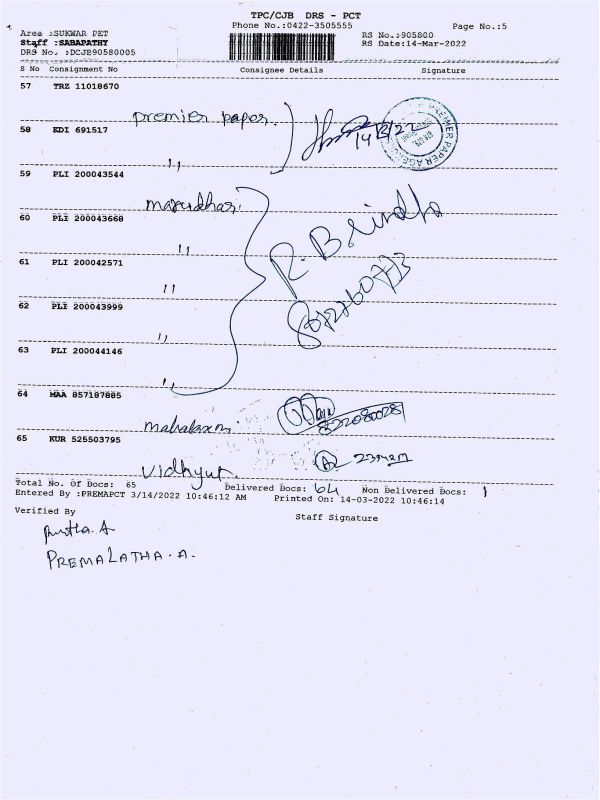 TPC/CJB DRS - PCT
Phone No.:0422-3505555
Page No.:5
Area :SUKWAR PET
RS No.:905800
Staff :SABAPATHY
RS Date:14-Mar-2022
DRS No. :DCJE90580005
S No Consignment No Consignee Details Signature
57 TRZ 11018670
premier paper.
58 KDI 691517
14/3/22
PREMIER PAPER AGENC
,,
59 PLI 200043544
marudhar
60 PLI 200043668
R. Brindha
,,
61 PLI 200042571
,,
62 PLI 200043999
,,
63 PLI 200044146
,,
64 MAA 857187885
mahalaxmi
65 KUR 525503795
vidhyut.
Total No. Of Docs: 65 Delivered Docs: 64 Non Delivered Docs: 1
Entered By :PREMAPCT 3/14/2022 10:46:12 AM Printed On: 14-03-2022 10:46:14
Verified By Staff Signature
PREMALATHA. A.